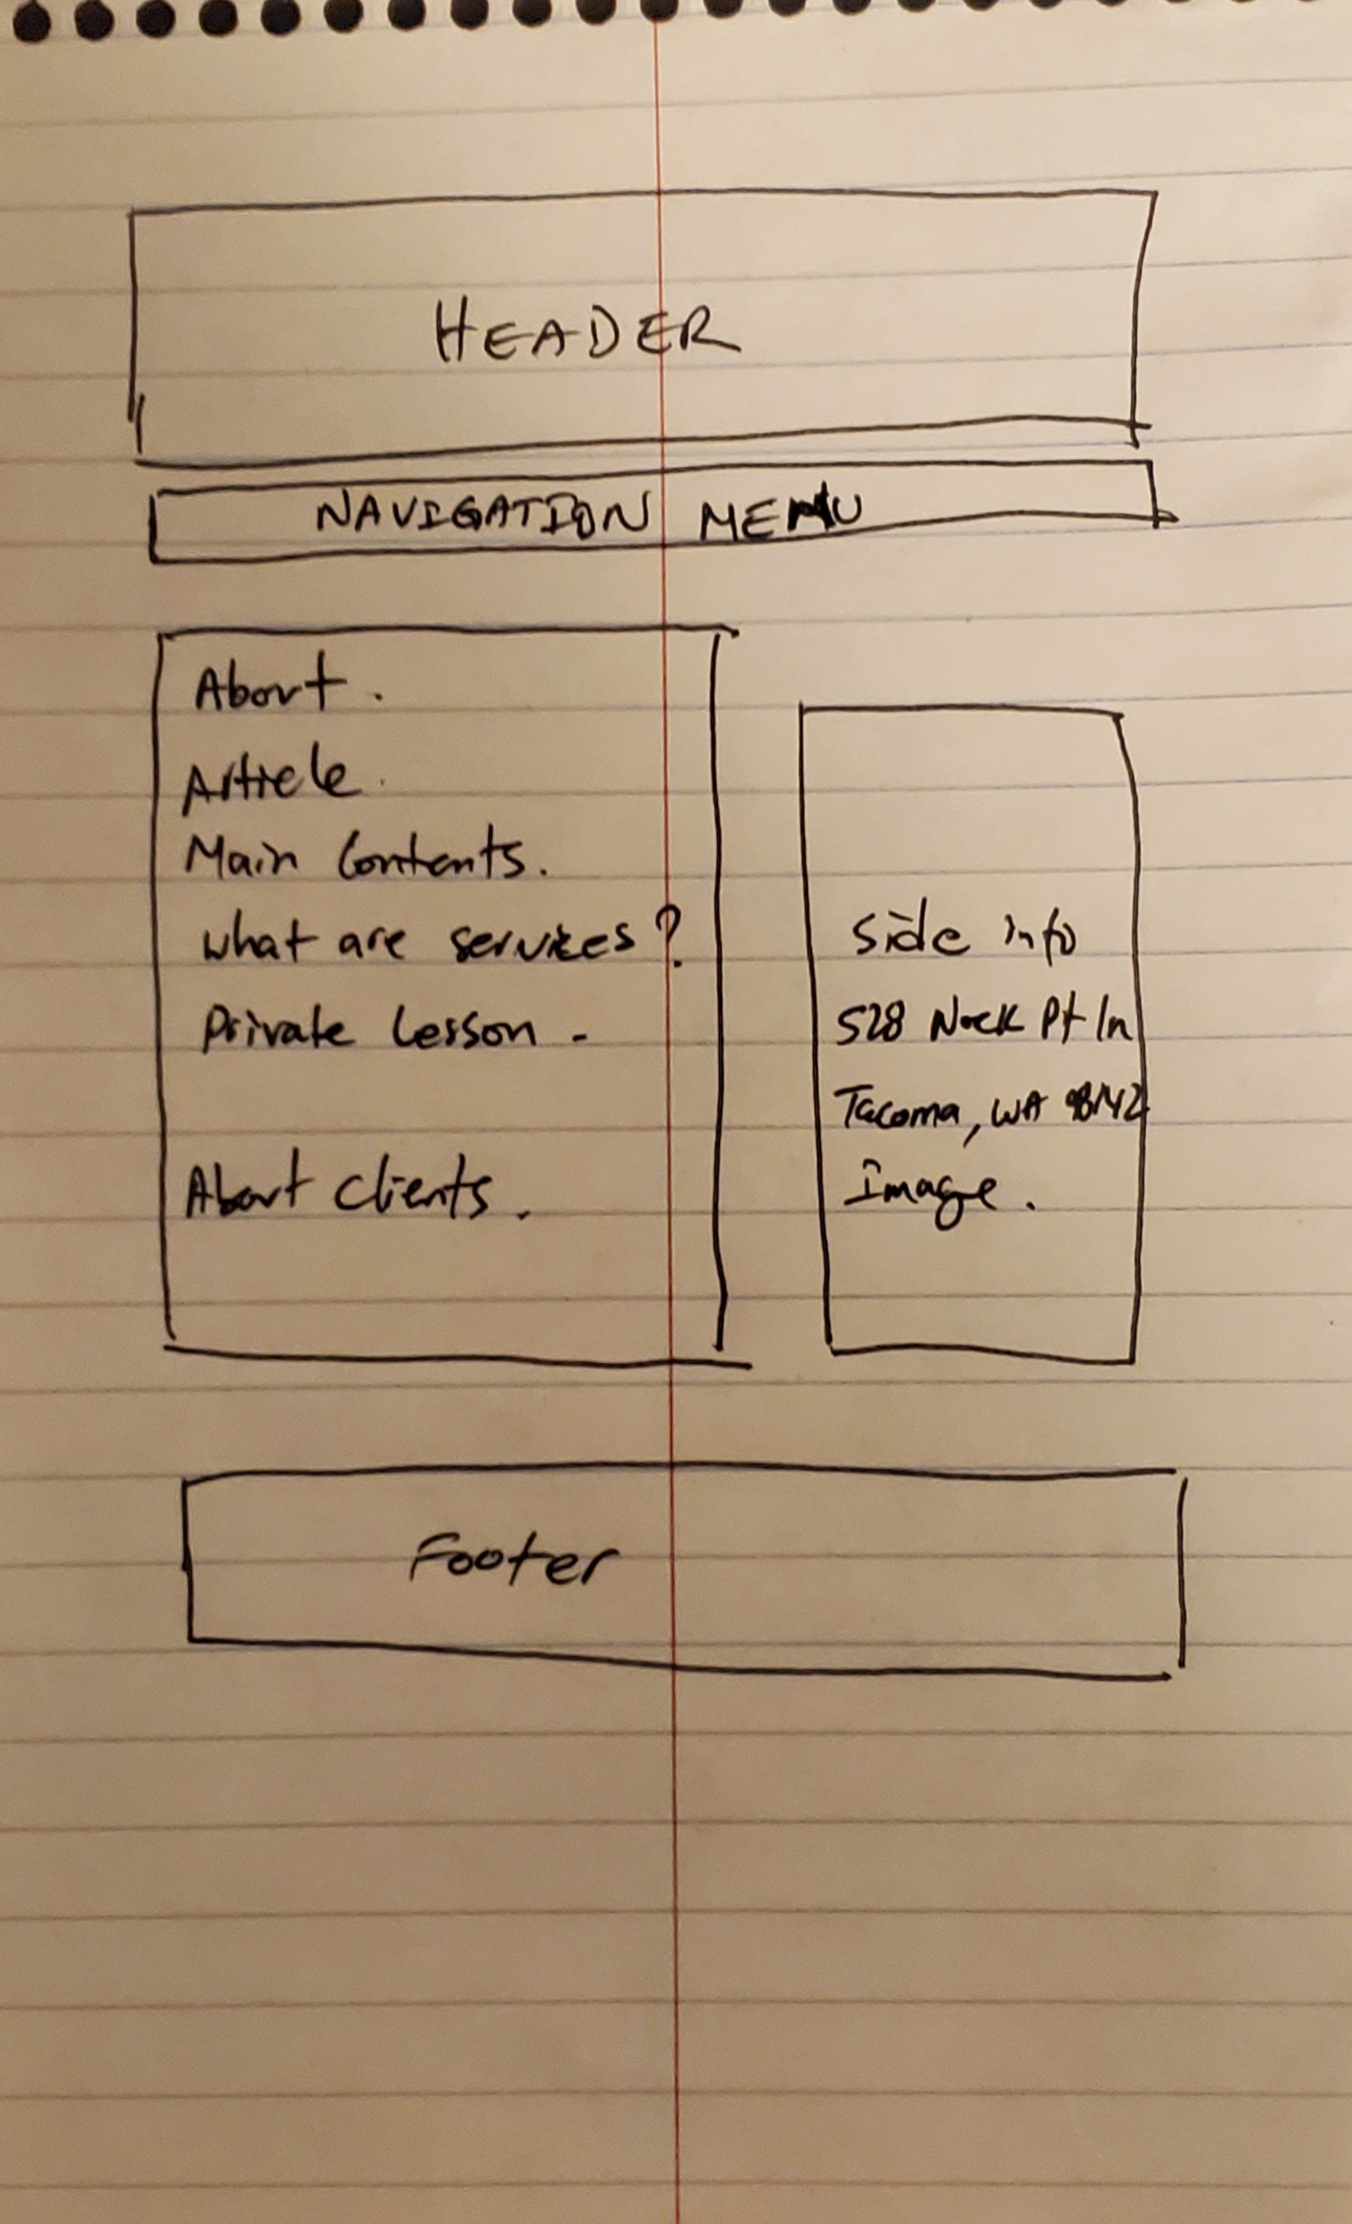 HEADER
NAVIGATION MENU
About.
Article.
Main Contents.
What are services?
Private Lesson -
About Clients.
Side info
528 Neck Pt ln
Tacoma, WA
Image.
Footer